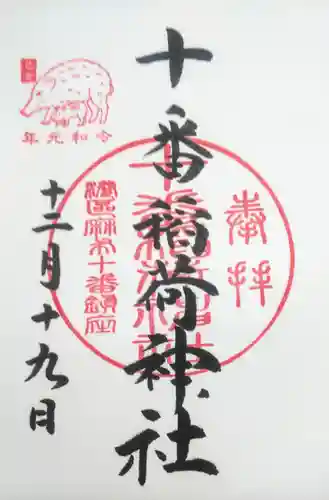 奉拝
十番稲荷神社
十番稲荷神社
港区麻布十番鎮座
令和元年
十二月十九日